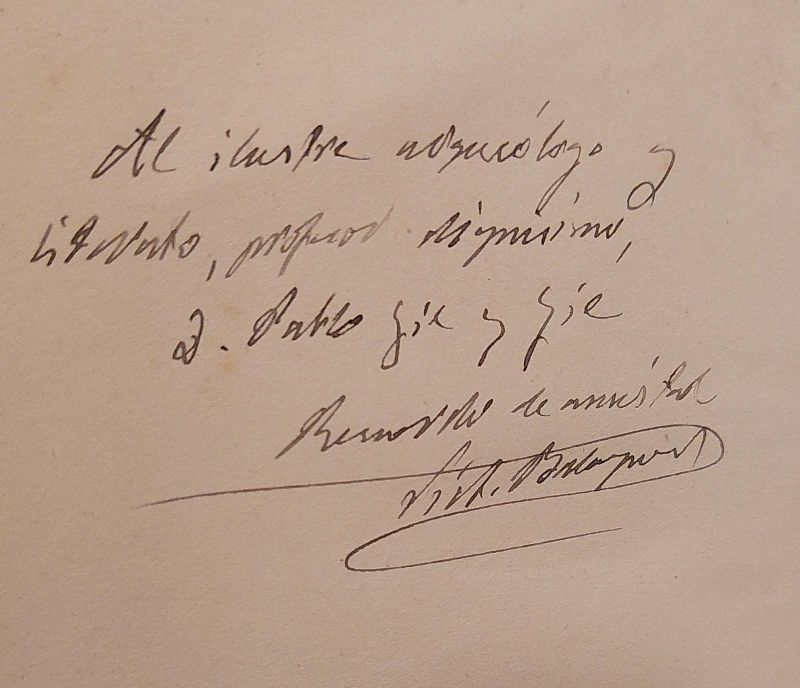 Al ilustre arqueólogo y
literato, profesor dignísimo,
D. Pablo Gil y Gil
Recuerdo de amistad
Vict. Balaguer